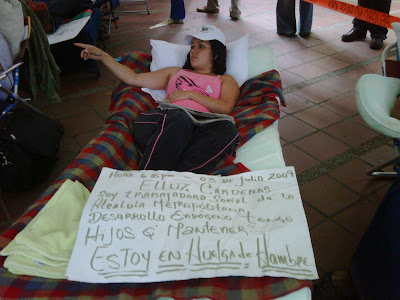 HORA 6:25pm 03 de Julio 2009
Elluz CARDENAS
SOY TRABAJADORA Social de LA
Alcaldia Metropolitana
Desarrollo Endogeno TENGO
Hijos Q' Mantener
ESTOY EN Huelga de Hambre